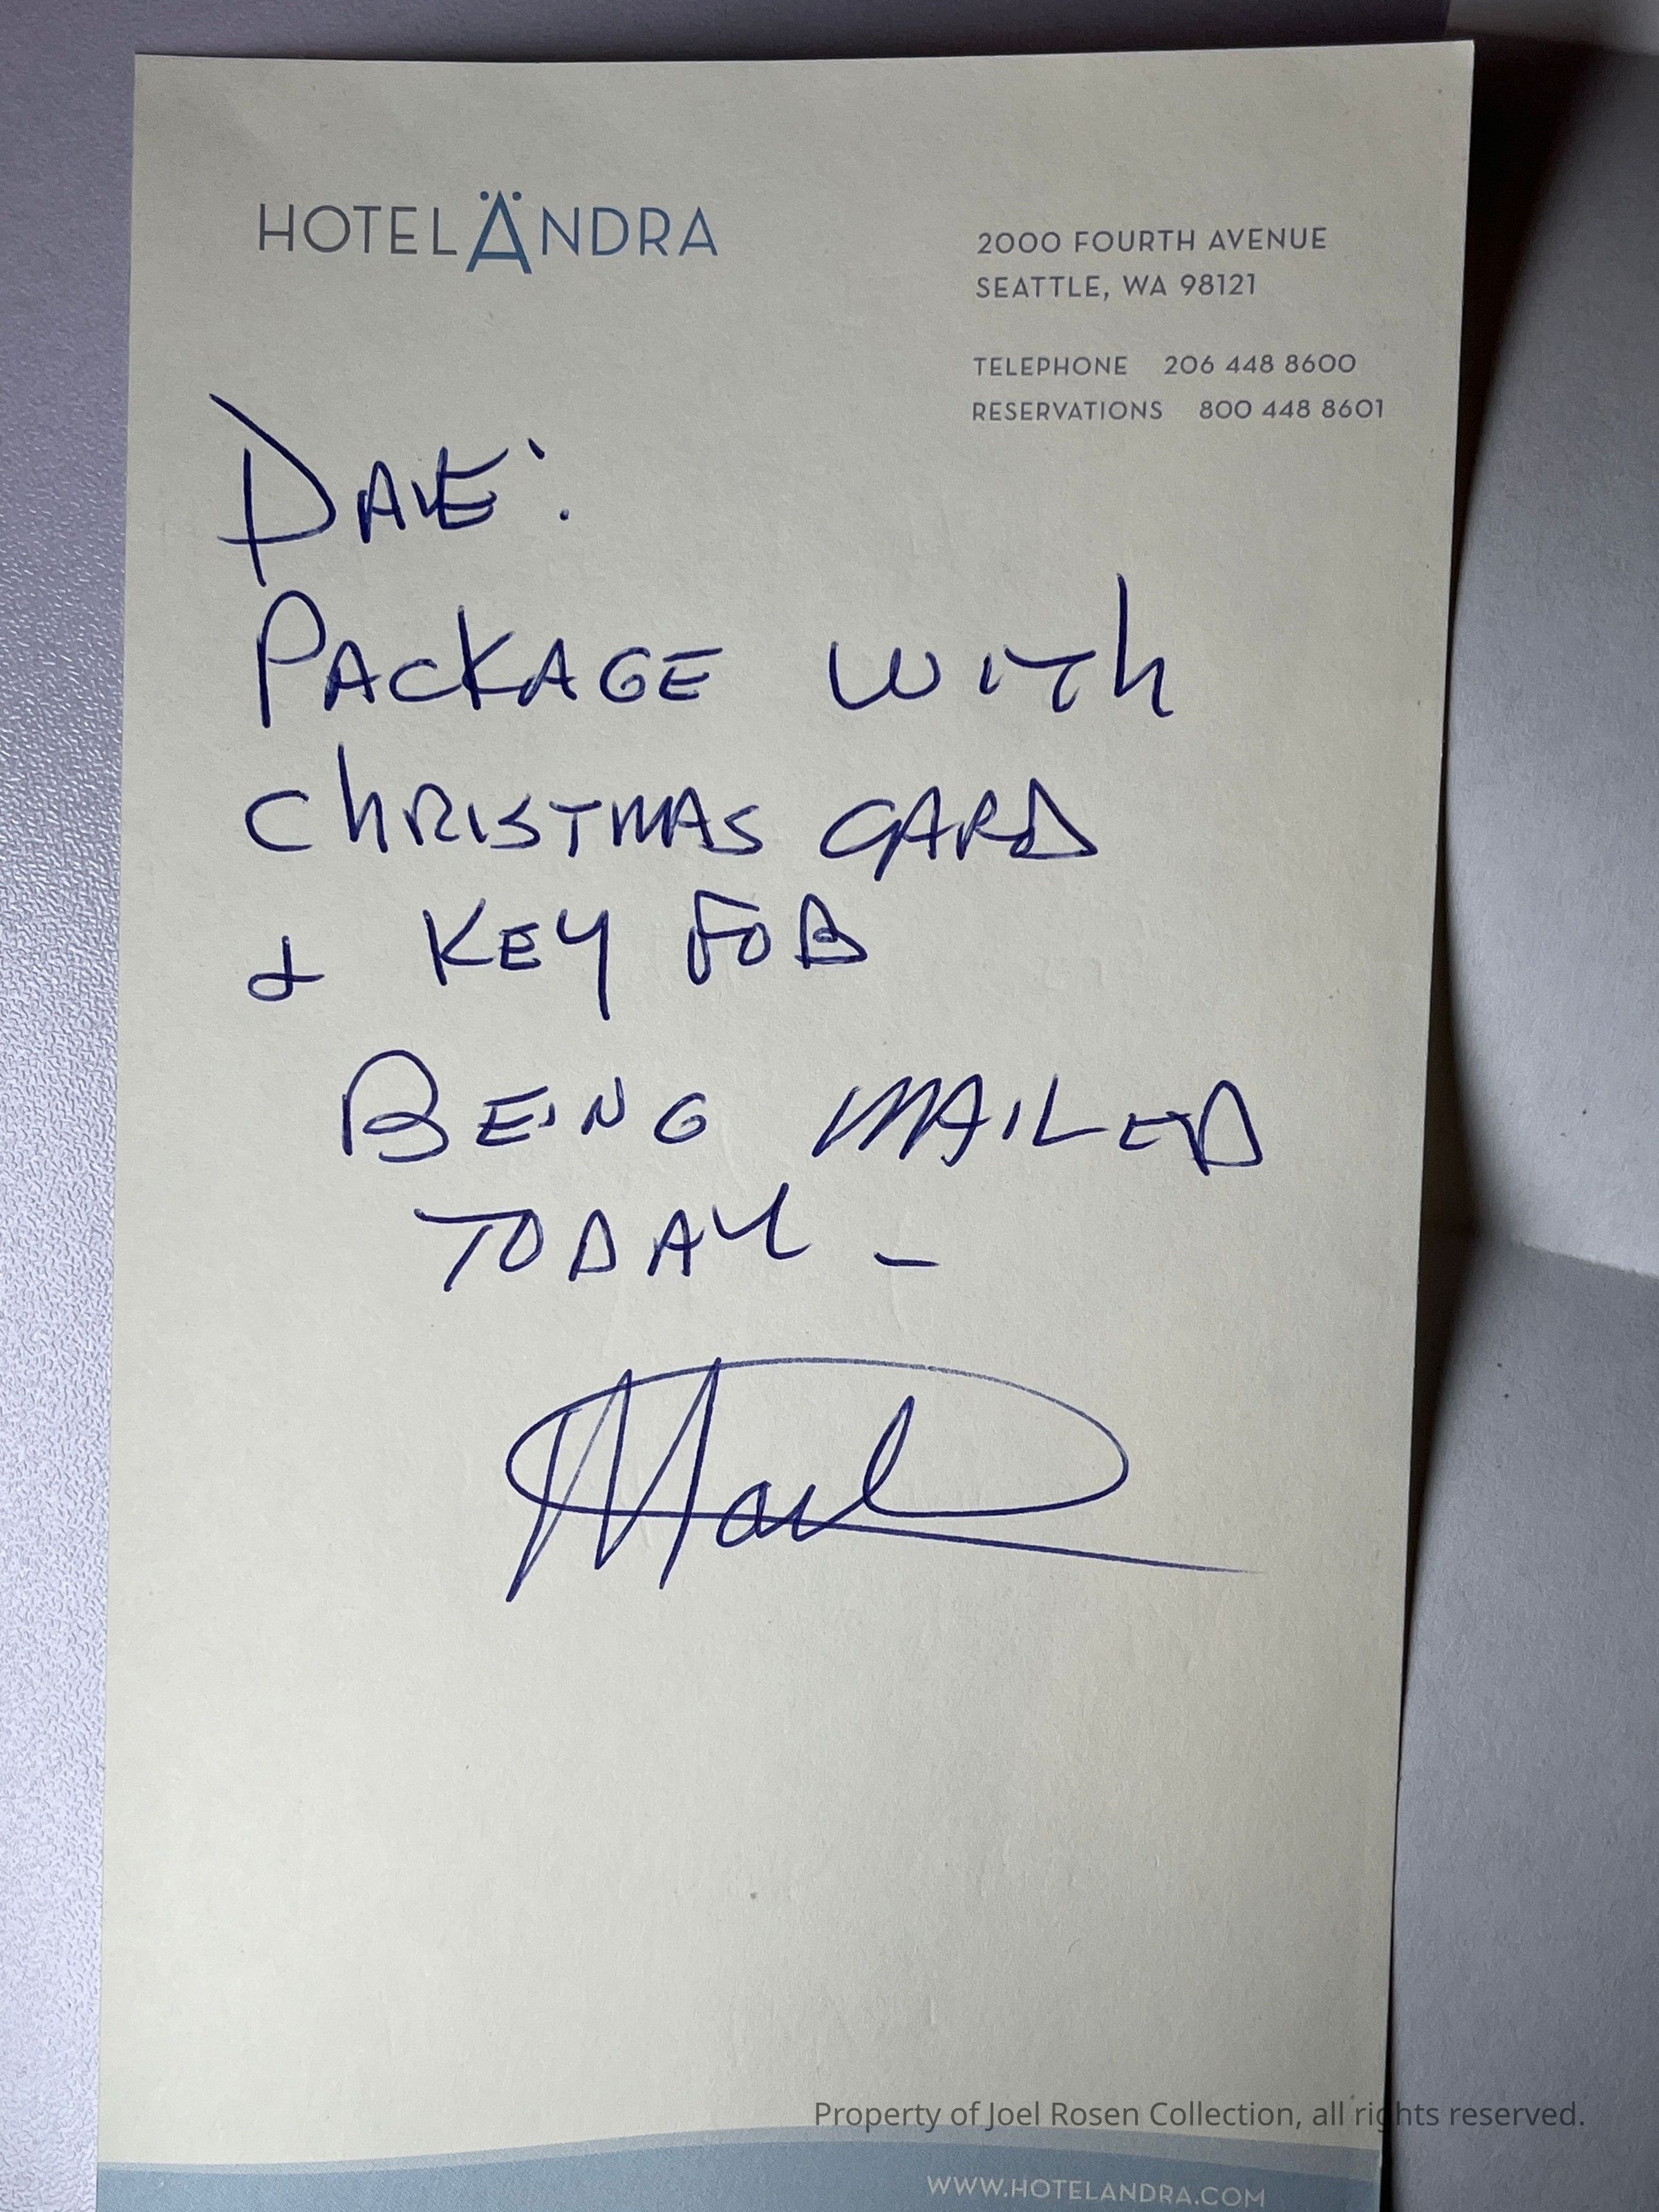 HOTEL ÄNDRA
2000 FOURTH AVENUE
SEATTLE, WA 98121
TELEPHONE 206 448 8600
RESERVATIONS 800 448 8601
DAVE:
PACKAGE WITH
CHRISTMAS CARD
& KEY FOB
BEING MAILED
TODAY –
Mark
Property of Joel Rosen Collection, all rights reserved.
WWW.HOTELANDRA.COM